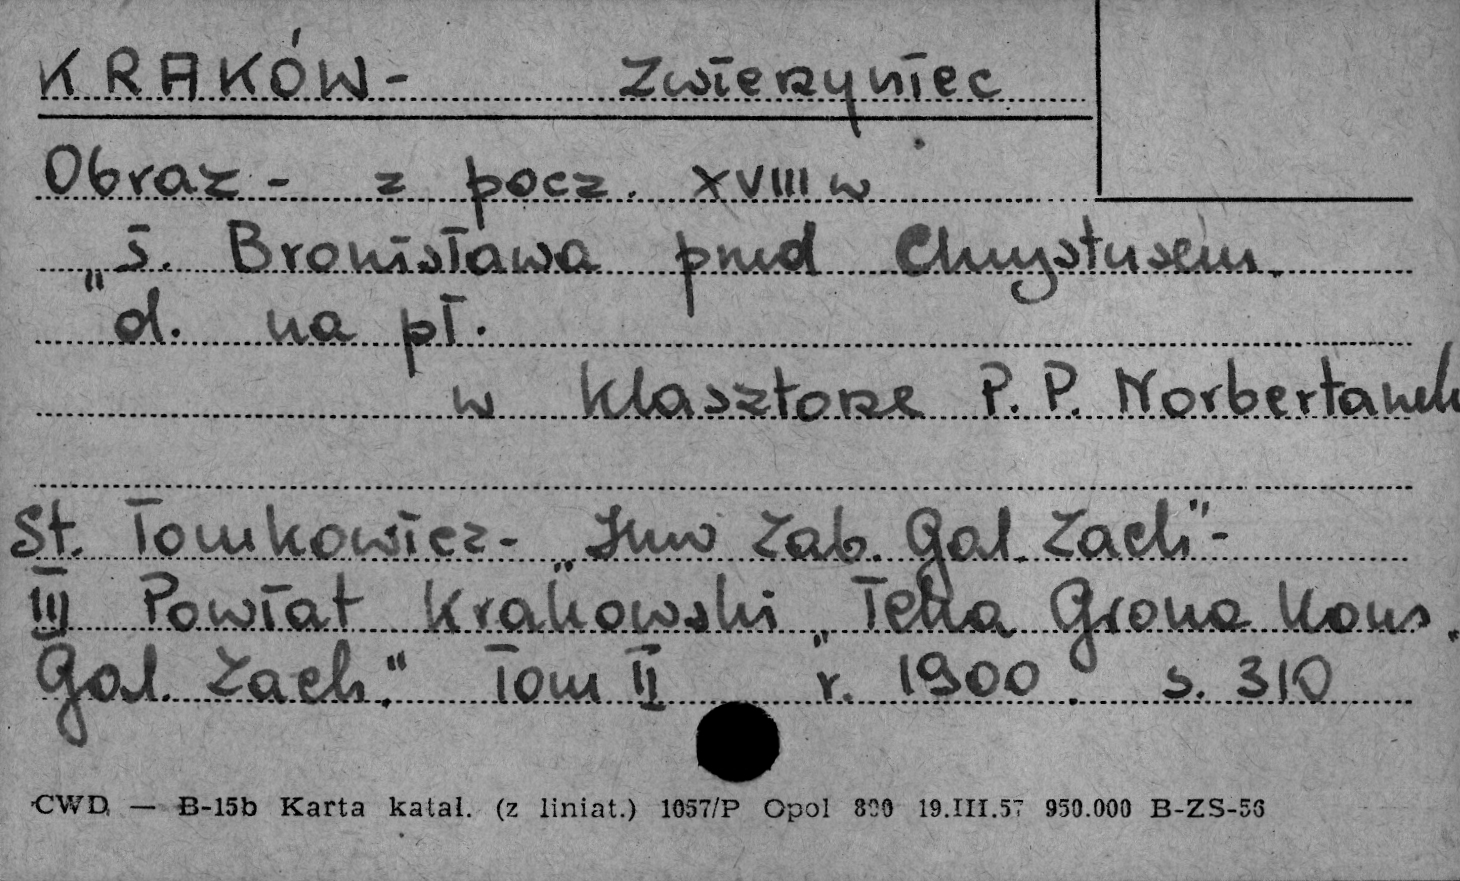 KRAKÓW- Zwierzyniec
Obraz - z pocz. XVIII w
„ś. Bronisława przed Chrystusem.
d. na pł.
w klasztorze P. P. Norbertanek
St. Tomkowicz - „Inw Zab. Gal. Zach"-
III Powiat Krakowski „Teka Grona Kons.
Gal. Zach." Tom II r. 1900. s. 310
CWD — B-15b Karta katal. (z liniat.) 1057/P Opol 800 19.III.57 950.000 B-ZS-56